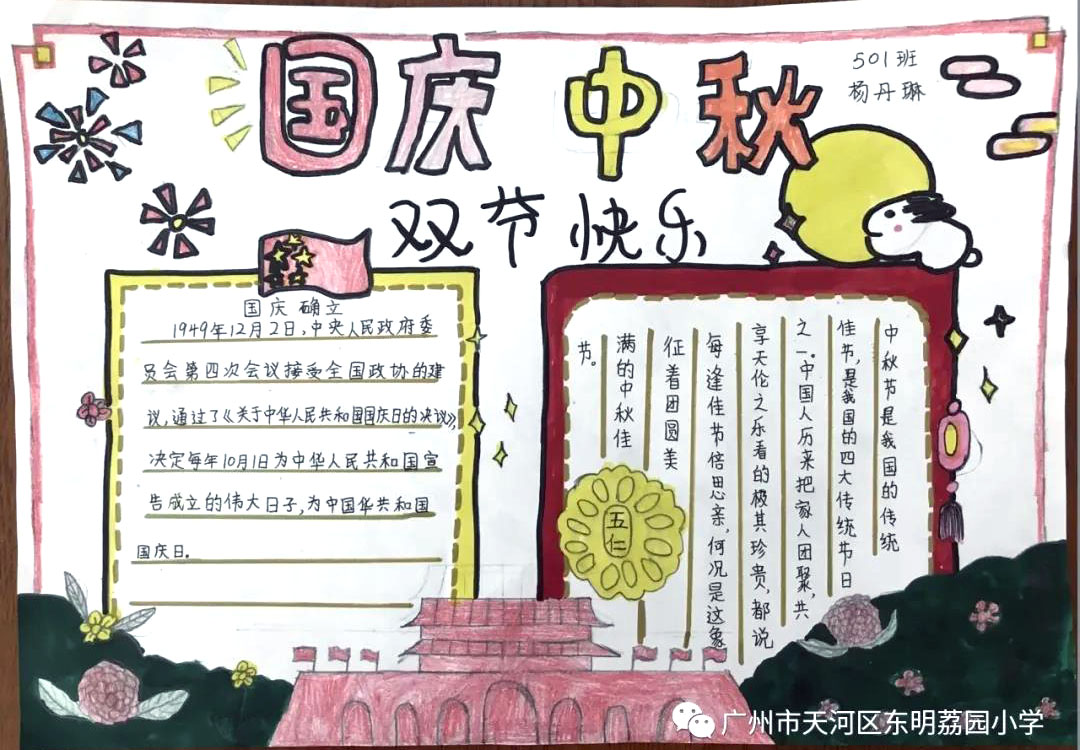 国庆 中秋
501班
杨丹琳
双节快乐
国庆 确立
1949年12月2日,中央人民政府委
员会第四次会议接受全国政协的建
议,通过了《关于中华人民共和国国庆日的决议》,
决定每年10月1日为中华人民共和国宣
告成立的伟大日子,为中国华共和国
国庆日.
中秋节是我国的传统
佳节,是我国的四大传统节日
之一.中国人历来把家人团聚,共
享天伦之乐看的极其珍贵,都说
每逢佳节倍思亲,何况是这象
征着团圆美
满的中秋佳
节。
五仁
广州市天河区东明荔园小学